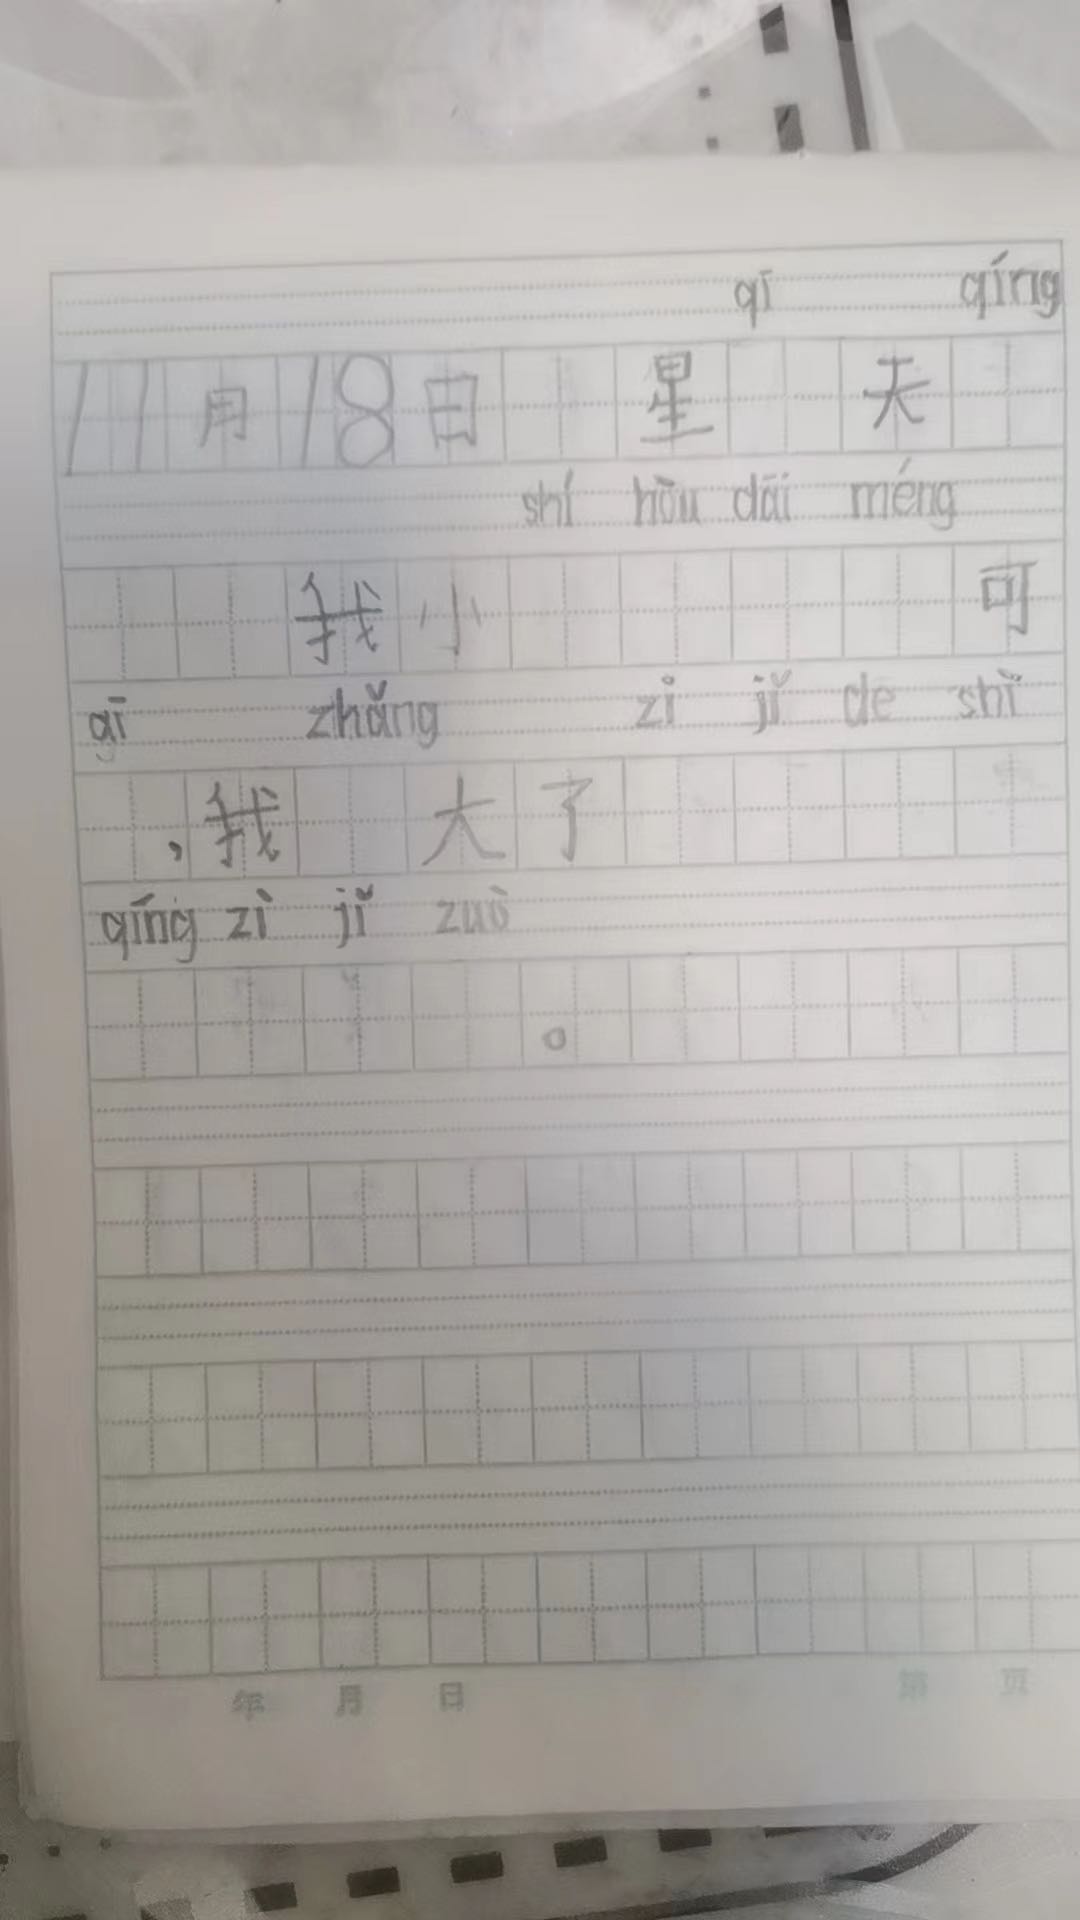 qī qíng
11月18日 星 天
shí hòu dāi méng
我小 可
qī zhǎng zì jǐ de shì
,我 大了
qíng zì jǐ zuò
。
年 月 日 第 页